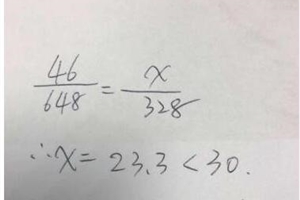 46/648 = x/328
∴x = 23.3 < 30.